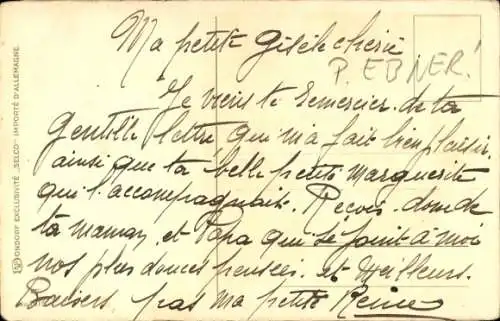 Ma petite Gisèle chérie
P. EBNER!
Je viens te remercier de ta
gentille lettre, qui m'a fait bien plaisir
ainsi que ta belle petite marguerite
qui l'accompagnait. Reçois donc de
ta maman, et Papa qui se joint à moi
nos plus douces pensées. et Meilleurs
Baisers pas ma petite Reine
ONDORF EXCLUSIVITÉ „SELCO" IMPORTÉ D'ALLEMAGNE